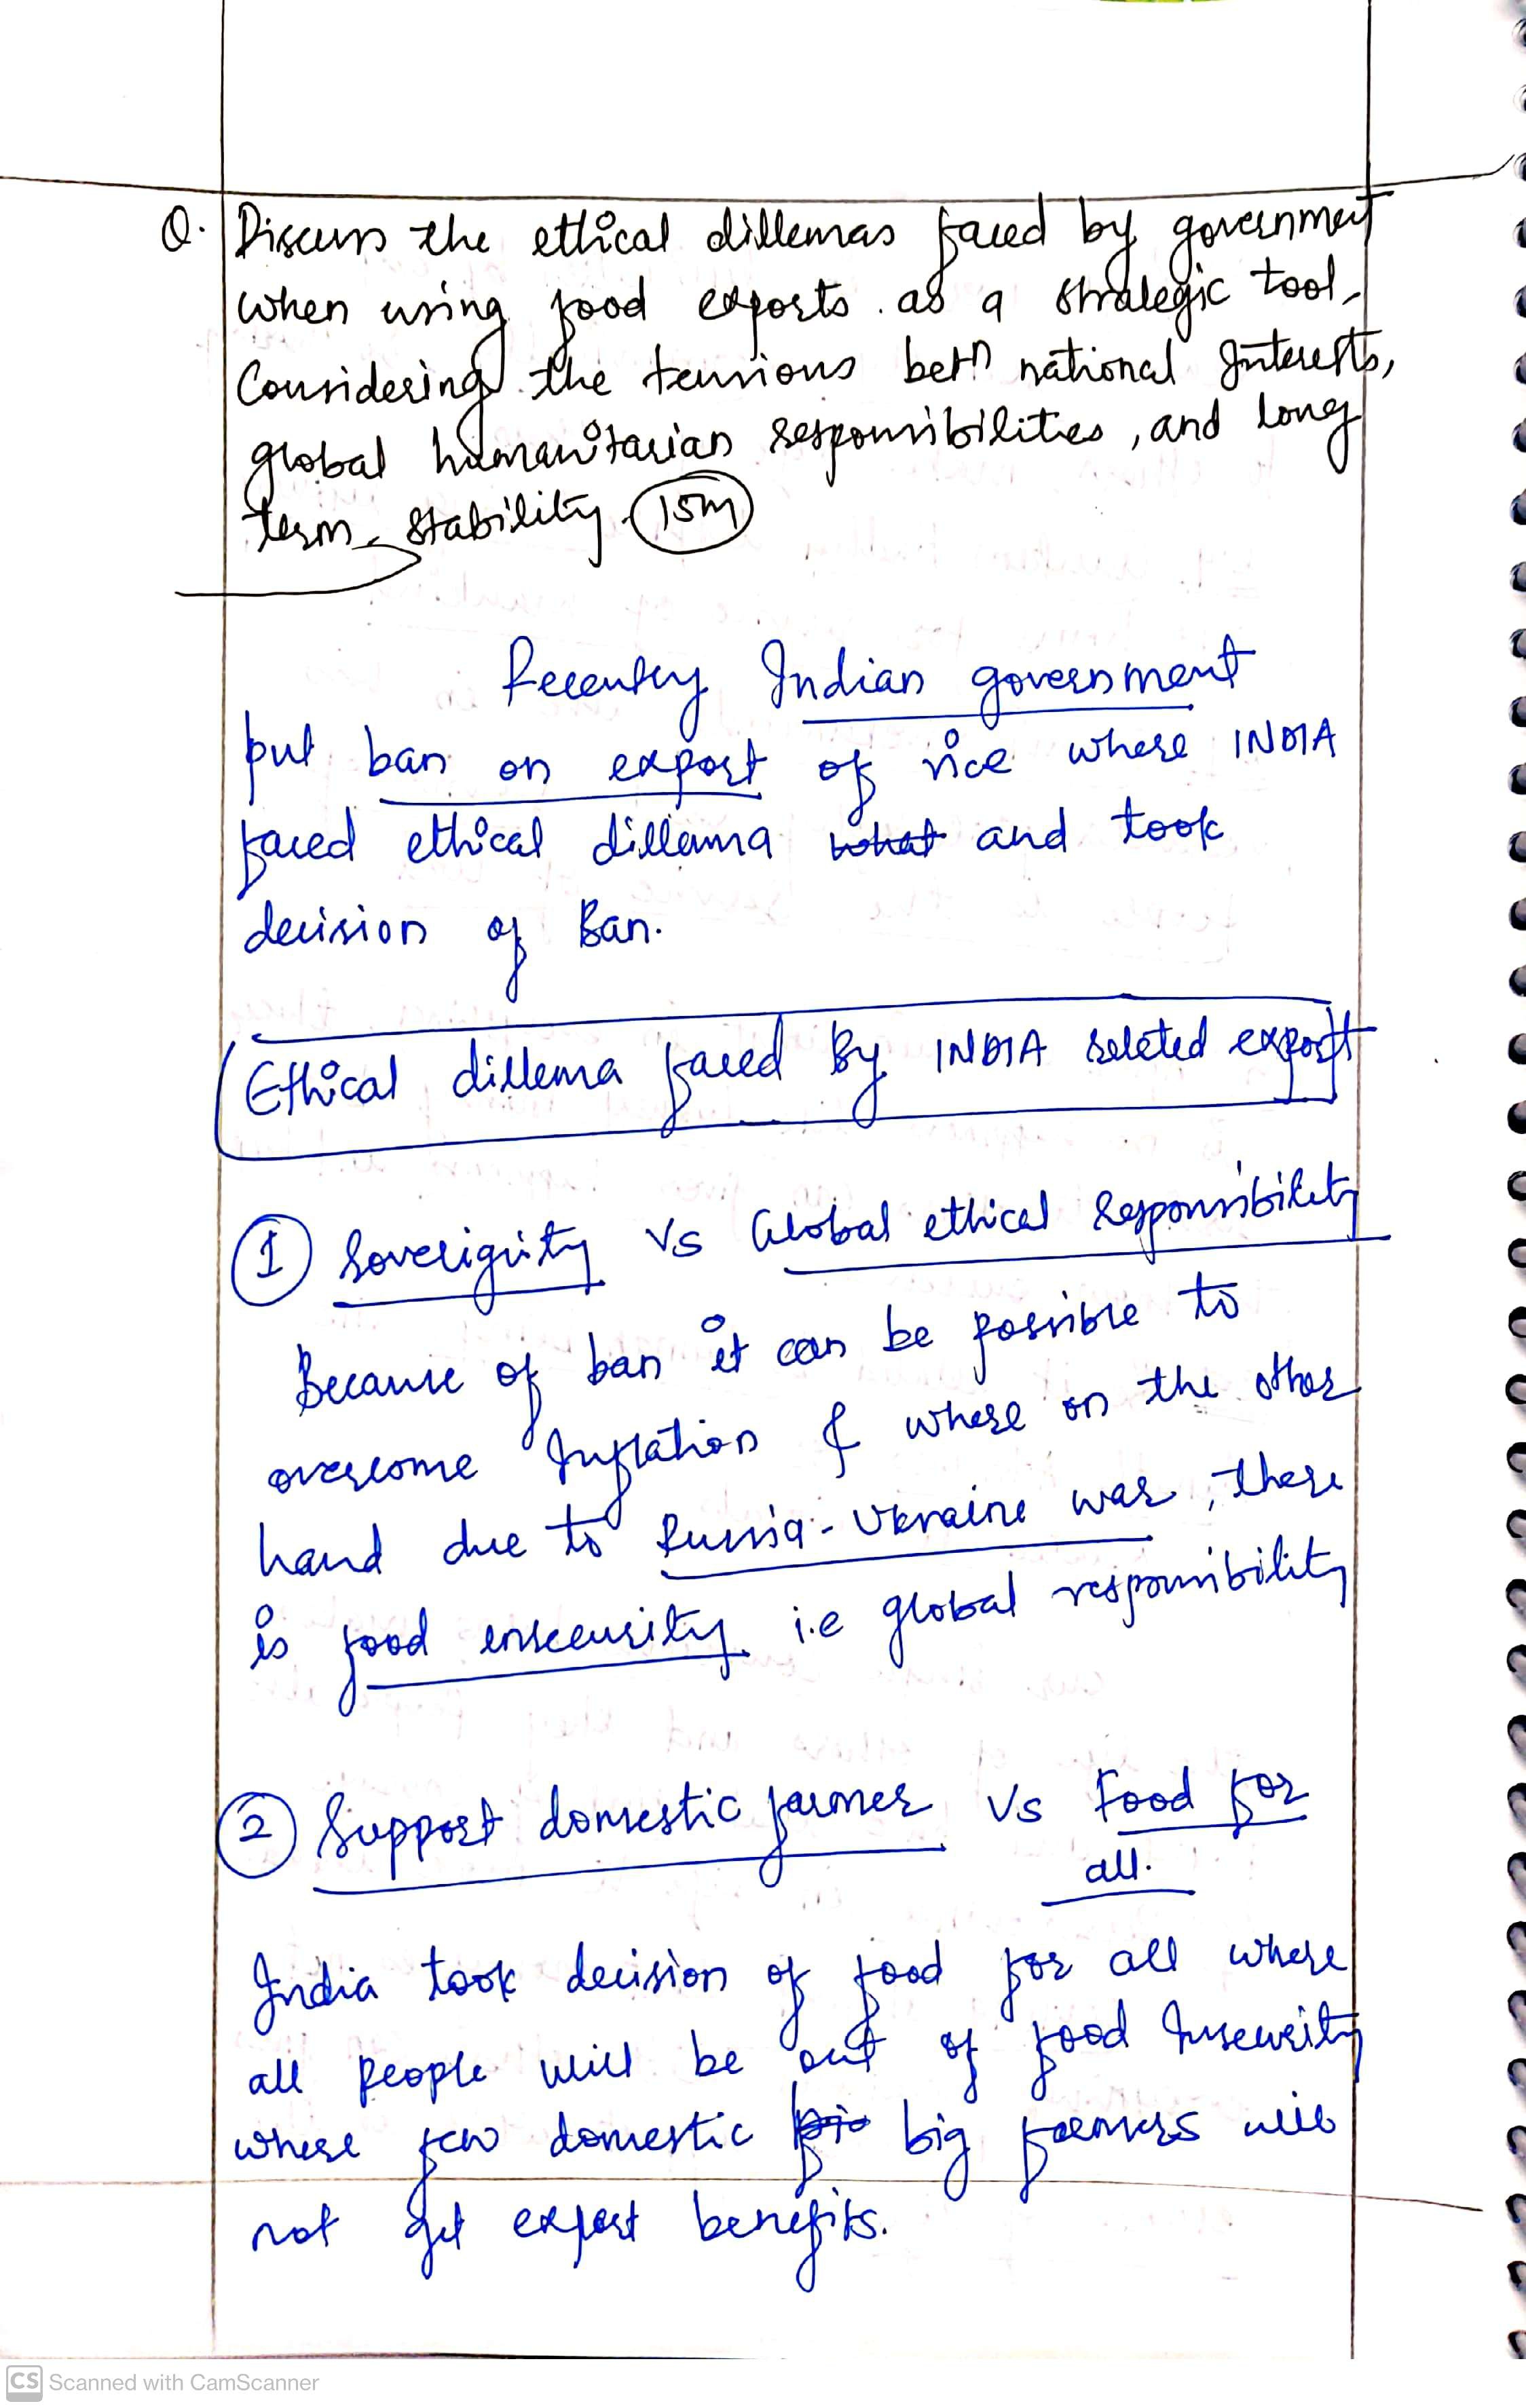 Q. Discuss the ethical dillemas faced by government
when using food exports as a strategic tool,
Considering the tensions betn national Interests,
global humanitarian responsibilities, and long
term stability. 15m
Recently Indian government
put ban on export of rice where INDIA
faced ethical dillema what and took
decision of Ban.
Ethical dillema faced By INDIA related export
1 Soverignity vs Global ethical Responsibility
Because of ban it can be possible to
overcome Inflation & where on the other
hand due to Russia-Ukraine war, there
is food insecurity i.e global responsibility
2 Support domestic farmer vs Food for
all.
India took decision of food for all where
all people will be out of food Insecurity
where few domestic big farmers will
not get export benefits.
CS Scanned with CamScanner